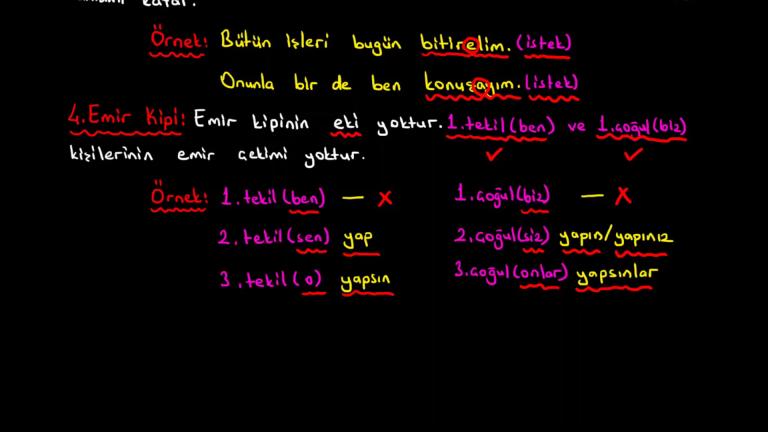 katar.
Örnek: Bütün işleri bugün bitirelim. (istek)
Onunla bir de ben konuşayım. (istek)
4. Emir Kipi: Emir kipinin eki yoktur. 1. tekil (ben) ve 1. çoğul (biz)
kişilerinin emir çekimi yoktur.
Örnek: 1. tekil (ben) — X 1. çoğul (biz) — X
2. tekil (sen) yap 2. çoğul (siz) yapın / yapınız
3. tekil (o) yapsın 3. çoğul (onlar) yapsınlar